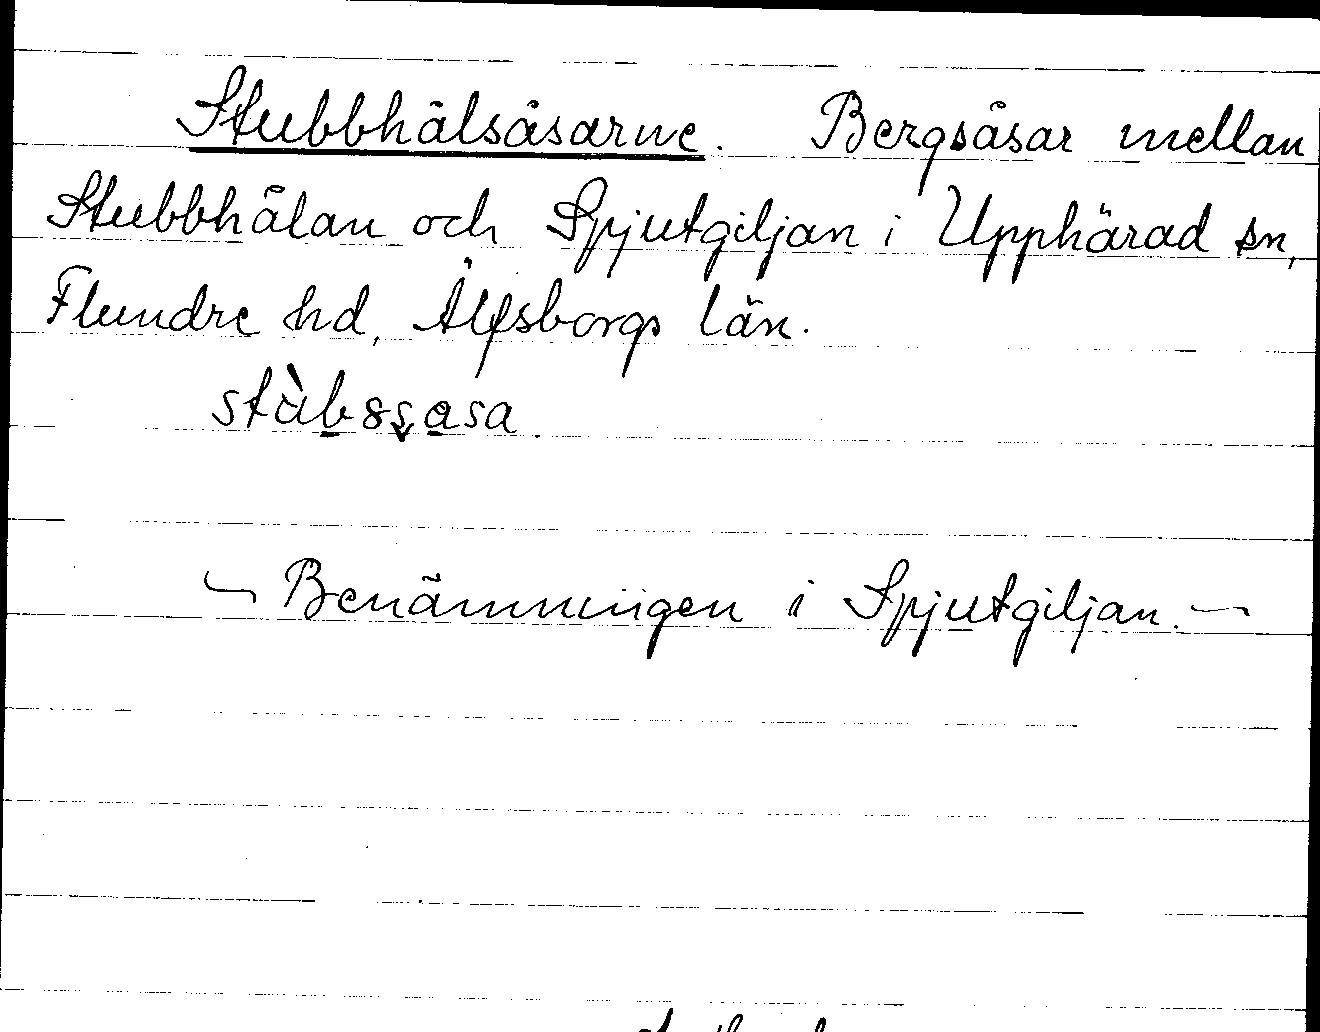 Stubbhålsåsarne. Bergsåsar mellan
Stubbhålan och Spjutgiljan i Upphärad sn,
Flundre hd, Älfsborgs län.
Benämningen i Spjutgiljan.